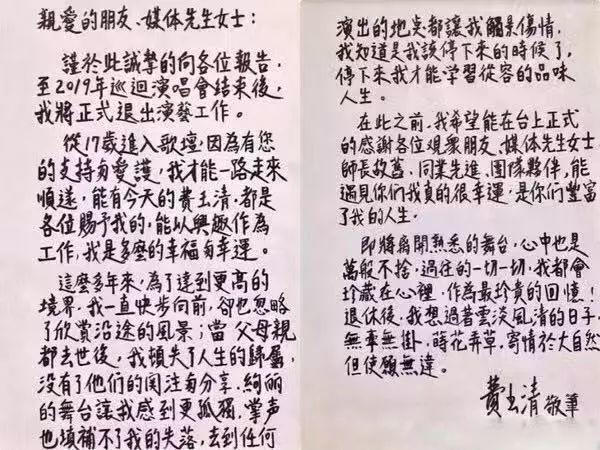 親愛的朋友、媒体先生女士：
謹於此誠摯的向各位報告，
至2019年巡迴演唱會結束後，
我將正式退出演藝工作。
從17歲進入歌壇，因為有您
的支持與愛護，我才能一路走來
順遂，能有今天的費玉清，都是
各位賜予我的，能以興趣作為
工作，我是多麼的幸福與幸運。
這麼多年來，為了達到更高的
境界，我一直快步向前，卻也忽略
了欣賞沿途的風景；當父母親
都去世後，我頓失了人生的歸屬，
沒有了他們的関注與分享，絢麗
的舞台讓我感到更孤獨，掌声
也填補不了我的失落，去到任何
演出的地点都讓我觸景傷情，
我知道是我該停下來的時候了，
停下來我才能學習從容的品味
人生。
在此之前，我希望能在台上正式
的感謝各位觀衆朋友、媒体先生女士
師長故舊、同業先進、團隊夥伴，能
遇見你們我真的很幸運，是你們豐富
了我的人生。
即將離開熟悉的舞台，心中也是
萬般不捨，過往的一切一切，我都會
珍藏在心裡，作為最珍貴的回憶！
退休後，我想過著雲淡風清的日子，
無牽無掛，蒔花弄草，寄情於大自然
但使願無違。
費玉清 敬筆